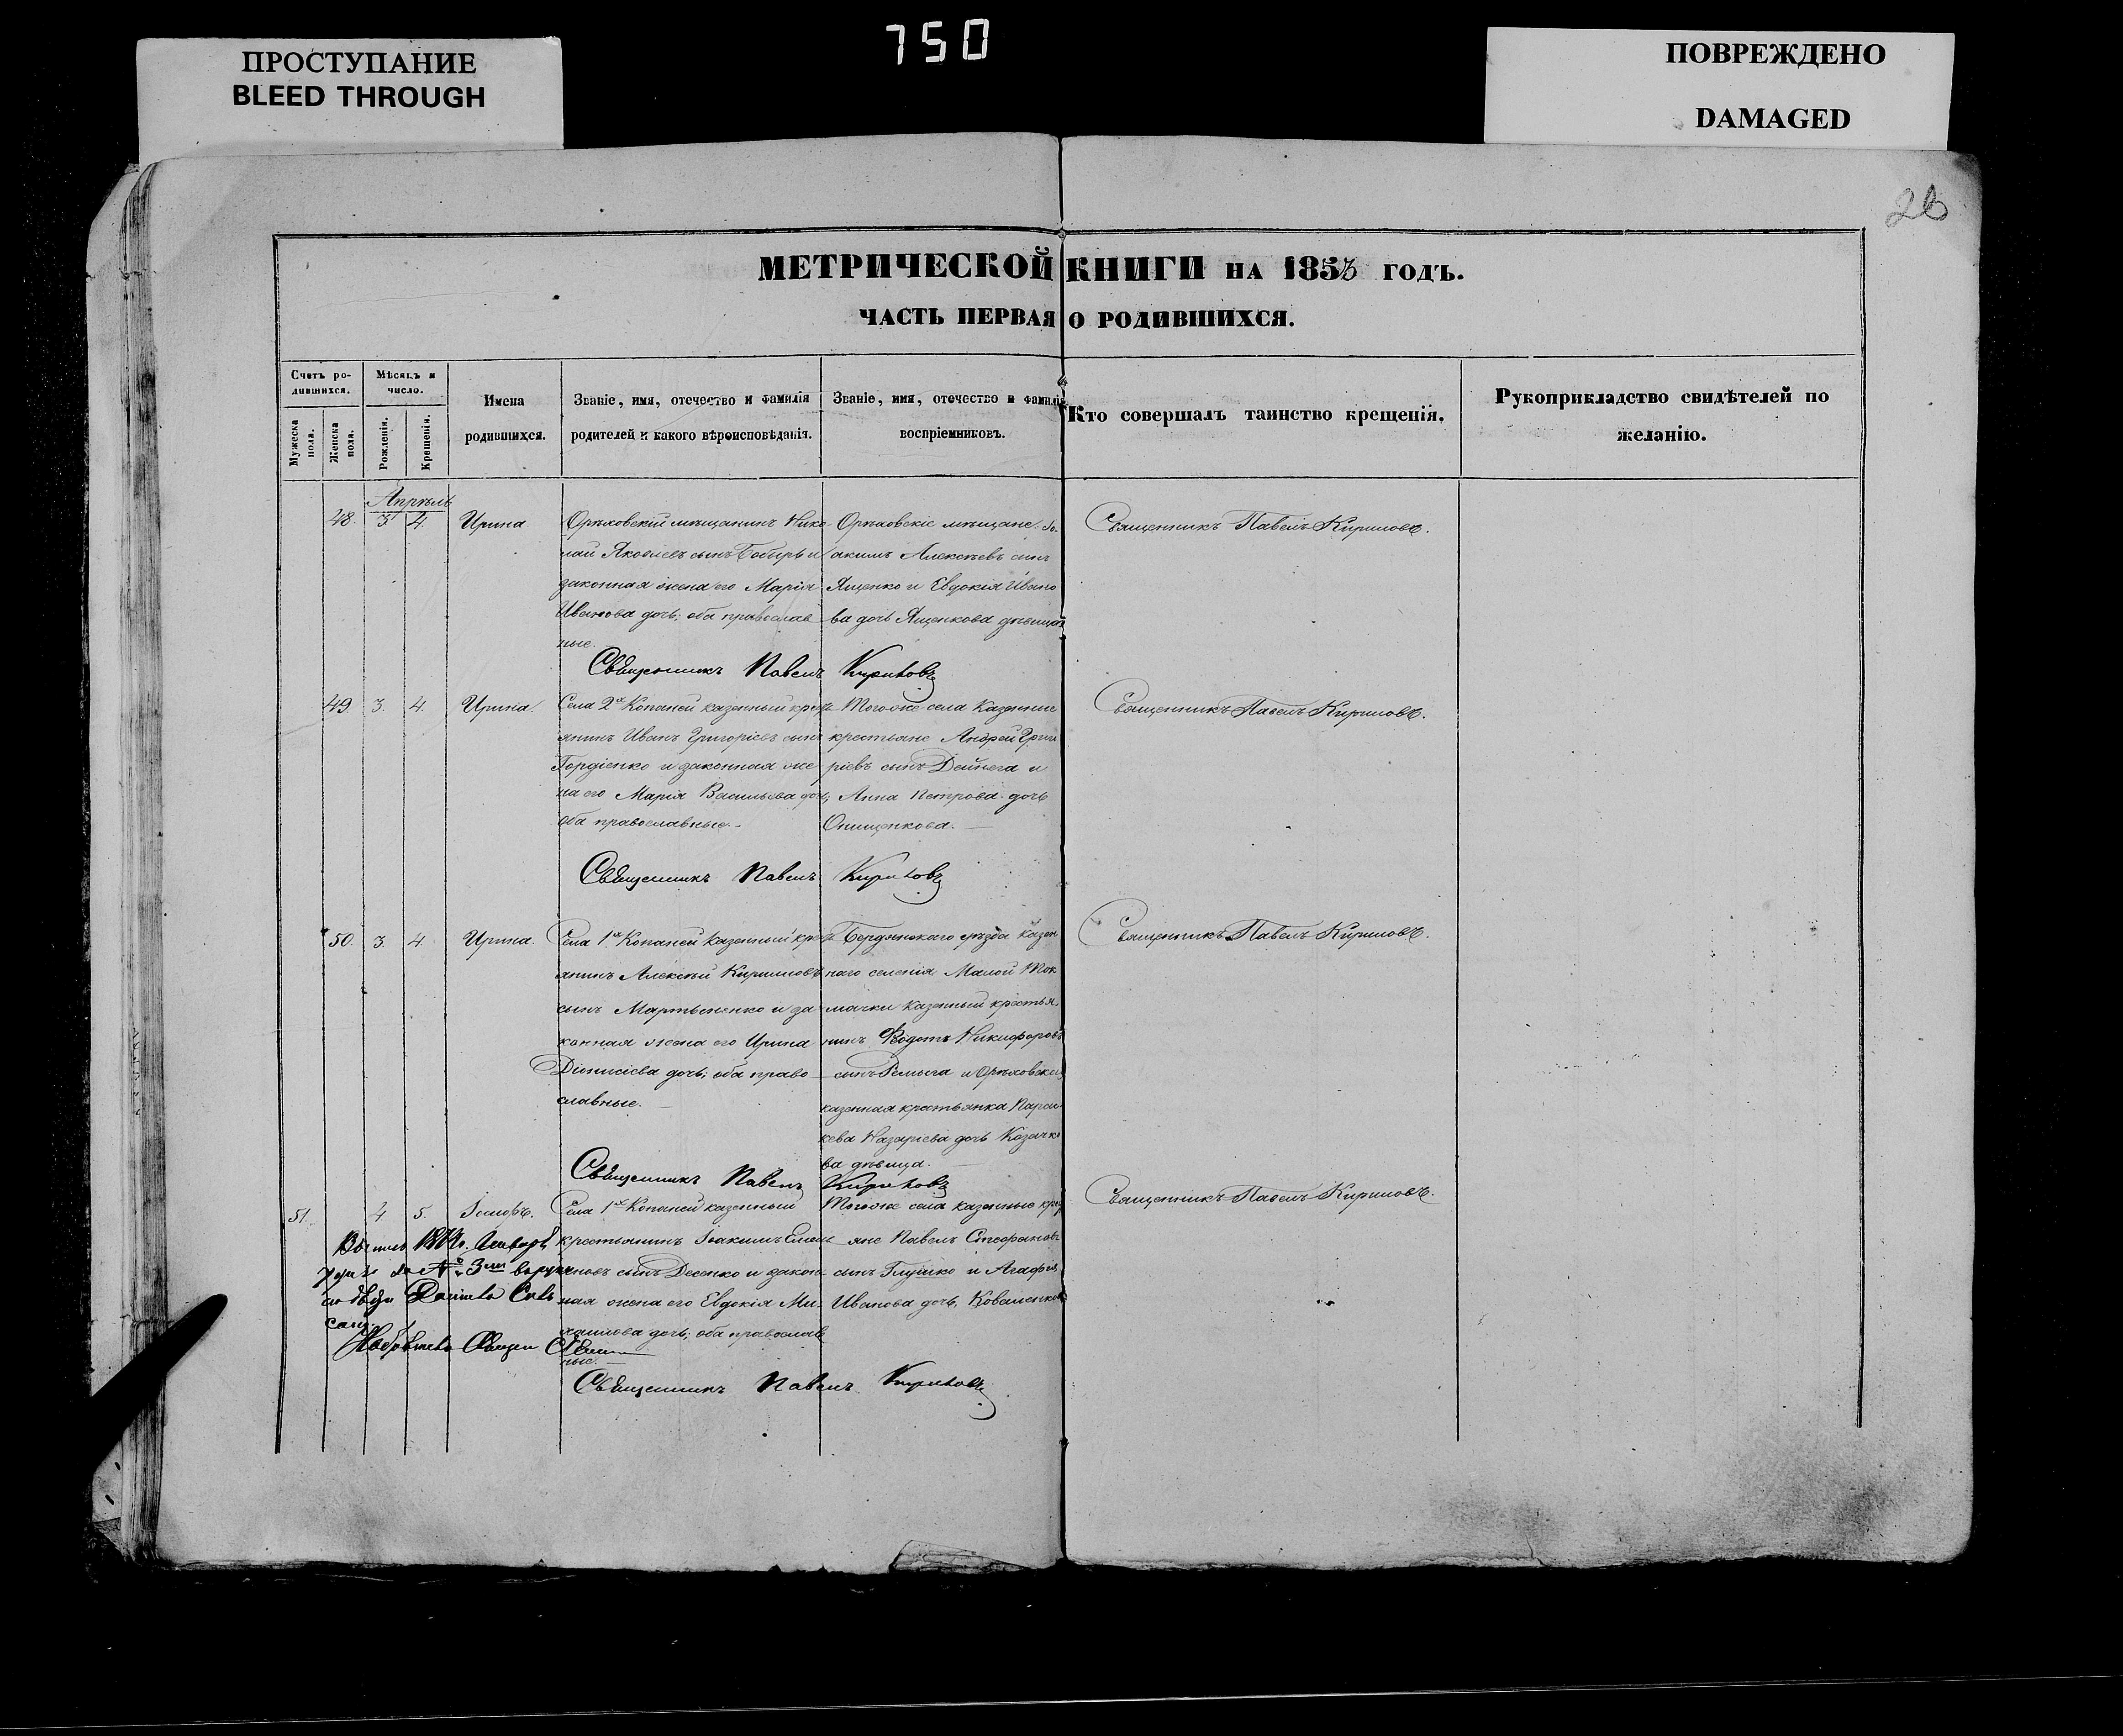 750
ПРОСТУПАНИЕ
BLEED THROUGH
ПОВРЕЖДЕНО
DAMAGED
26
МЕТРИЧЕСКОЙ КНИГИ НА 1853 ГОДЪ.
ЧАСТЬ ПЕРВАЯ О РОДИВШИХСЯ.
Счетъ ро-
дившихся.
Мужеска пола.
Женска пола.
Мѣсяцъ и
число.
Рожденія.
Крещенія.
Имена
родившихся.
Званіе, имя, отечество и фамилія
родителей и какого вѣроисповѣданія.
Званіе, имя, отечество и фамилія
воспріемниковъ.
Кто совершалъ таинство крещенія.
Рукоприкладство свидѣтелей по
желанію.
Апрѣль
48. 3 4. Ирина
Орѣховскій мѣщанинъ Нико-
лай Яковлевъ сынъ Бобырь и
законная жена его Марія
Иванова дочь; оба православ
ные.
Орѣховскіе мѣщане: Іо-
акимъ Алексѣевъ сынъ
Ященко и Евдокія Ивано
ва дочь Ященкова дѣвица
Священникъ Павелъ Кириловъ.
Священникъ Павелъ Кириловъ
49 3. 4. Ирина.
Села 2х Копаней казенный крест
янинъ Иванъ Григоріевъ сынъ
Гордіенко и законная же
на его Марія Васильева дочь;
оба православные.
Того же села Казенные
крестьяне Андрей Григо
ріевъ сынъ Дейнега и
Анна Петрова дочь
Онищенкова.
Священникъ Павелъ Кириловъ.
Священникъ Павелъ Кириловъ
50. 3. 4. Ирина.
Села 1х Копаней Казенный крест
янинъ Алексѣй Кириловъ
сынъ Мартыненко и за
конная жена его Ирина
Діонисіева дочь; оба право
славные.
Бердянскаго уѣзда казен
наго селенія Малой Ток
мачки казенный крестья
нинъ Ѳедотъ Никифоровъ
сынъ и Орѣховска
казенная крестьянка Парас
кева Назаріева дочь Козачко
ва дѣвица.
Священникъ Павелъ Кириловъ.
Священникъ Павелъ Кириловъ
51. 4 5. Іосифъ.
Села 1х Копаней казенный
крестьянинъ Іоакимъ Емель
яновъ сынъ Десенко и закон-
ная жена его Евдокія Ми-
хаилова дочь; оба православ
ные.
Того же села казенные крес
яне Павелъ Стефановъ
сынъ Глушко и Агафія
Иванова дочь, Коваленкова
Священникъ Павелъ Кириловъ.
Священникъ Павелъ Кириловъ